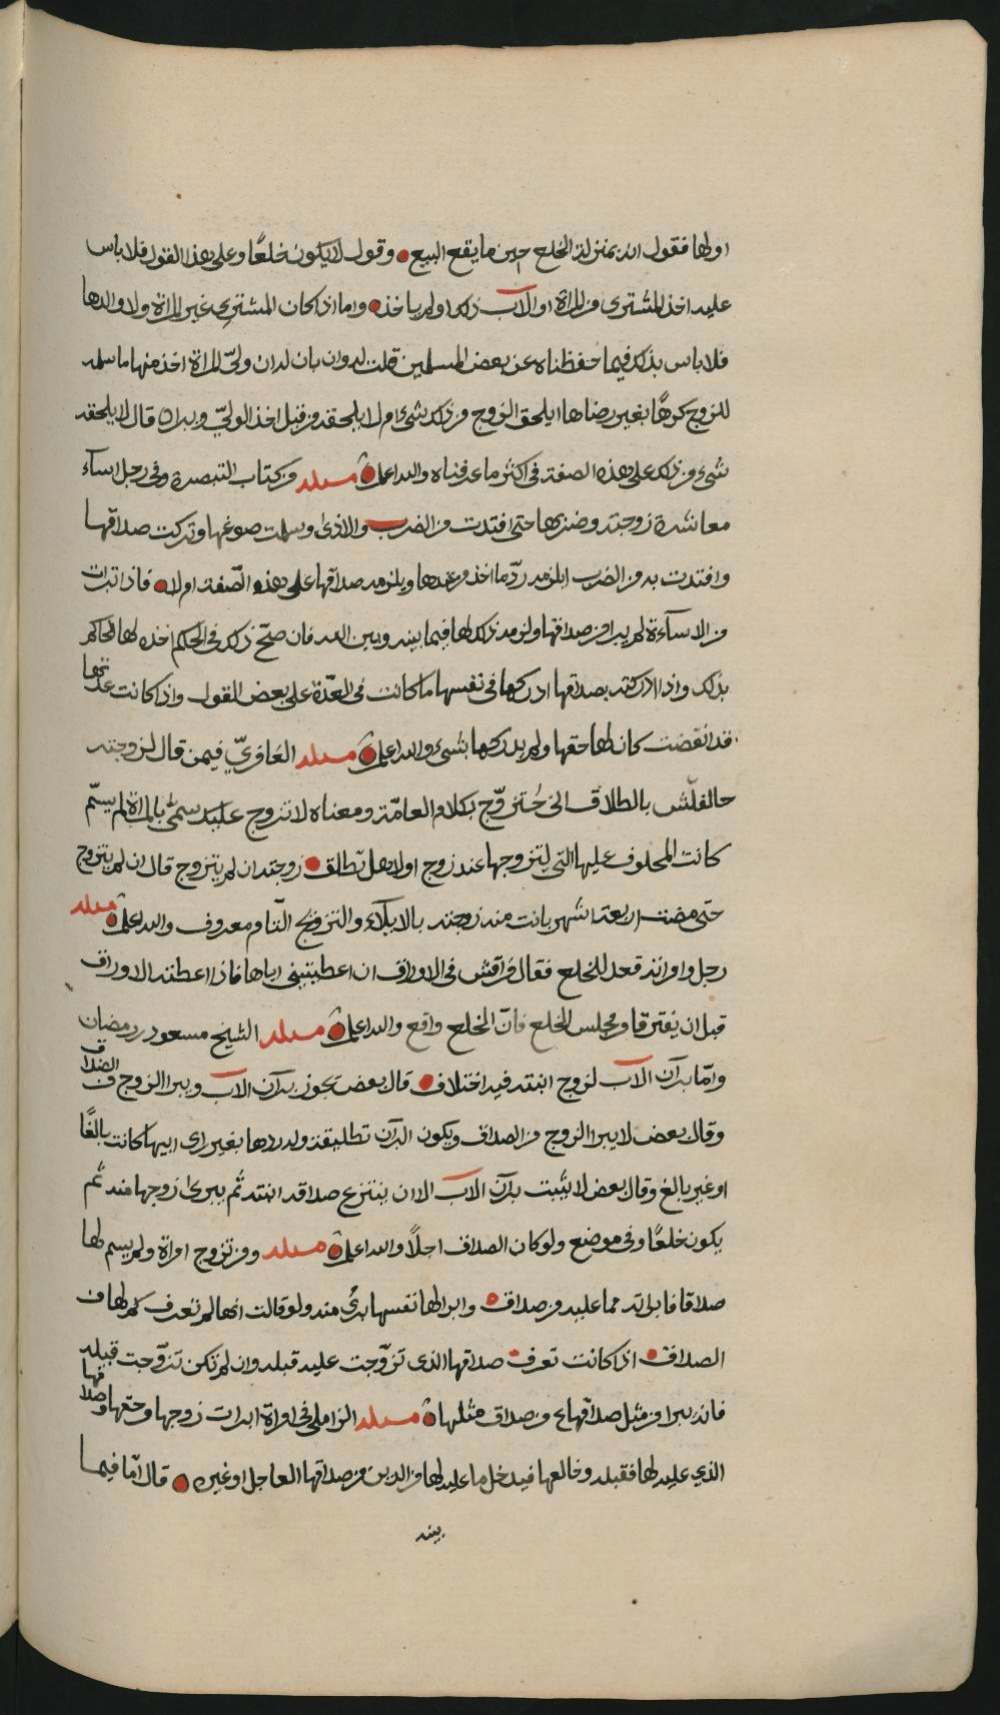 اولها فقول انه بمنزلة الخلع حين ما يقع البيع وقول لا يكون خلعًا وعلى هذا القول فلا باس
عليه اخذ المشتري من المراة او الاب ذلك اولم ياخذه واما اذا كان المشتري غير المراة ولا والدها
فلا باس بذلك فيما حفظناه عن بعض المسلمين قلت له وان بان له ان وليّ المراة اخذ منها ما سلمه
للزوج كرهًا بغير رضاها ايلحق الزوج من ذلك شيء ام لا يلحقه من قبل اخذ الولي قال لا يلحقه
شيء من ذلك على هذه الصفة في اكثر ما عرفناه والله اعلم مسئلة من كتاب التبصرة وفي رجل اسآء
معاشرة زوجته وضربها حتى افتدت من الضرب والاذى وسلمت صوغها وتركت صداقها
وافتدت به من الضرب ايلزمه ردّ ما اخذ من عندها ويلزمه صداقها على هذه الصّفة ام لا فاذا تبرات
من الاسآءة لم يبرا من صداقها ولزمه ذلك لها فيما بينه وبين الله فان صحّ ذلك في الحكم اخذه لها الحاكم
بذلك واذا ادركته بصداقها ادركها في نفسها ما كانت في العدّة على بعض القول واذا كانت عدتها
قد انقضت كان لها حقها ولم يدركها بشيء والله اعلم مسئلة الغافريّ فيمن قال لزوجته
حالفلّش بالطلاق الى حُتزوّج بكلام العامّة ومعناه لا تزوج عليك سمّى بالمراة لم يسمّ
كانت المحلوف عليها التي ليتزوجها عند زوج اولا هل تطالق زوجته ان لم يتزوج قال ان لم يتزوج
حتى مضت اربعة اشهر بانت منه زوجته بالايلآء والتزويج التّام معروف والله اعلم مسئلة
رجل وامراته قعدا للخلع فقال قراقش في الاوراق ان اعطيتيني اياها فاذا اعطته الاوراق
قبل ان يفترقا من مجلس الخلع فانّ الخلع واقع والله اعلم مسئلة الشيخ مسعود بن رمضان
وامّا برآن الاب لزوج ابنته فيه اختلاف قال بعض يجوز برآن الاب ويبرا الزوج من الصداق
وقال بعض لا يبرا الزوج من الصداق ويكون البرآن تطليقة وله ردها بغير راى ابيها كانت بالغًا
او غير بالغ وقال بعض لا يثبت برآن الاب الا ان ينتزع صداقه ابنته ثم يبرئ زوجها منه ثم
يكون خلعًا وفي موضع ولو كان الصداق اجلًا والله اعلم مسئلة ومن تزوج امراة ولم يسم لها
صداقا فابراته مما عليه من صداق وابرا لها نفسها بري منه ولو قالت انها لم تعرف كم لها من
الصداق اذا كانت تعرف صداقها الذي تزوّجت عليه قبله وان لم تكن تزوّجت قبله
فانه يبرا من مثل صداقها من صداق مثلها مسئلة الزاملي في امراة ابرات زوجها من حقها وصداقها
الذي عليه لها فقبله وخالعها فيدخل ما عليه لها من الدين من صداقها العاجل او غيره قال امّا فيما
بينه